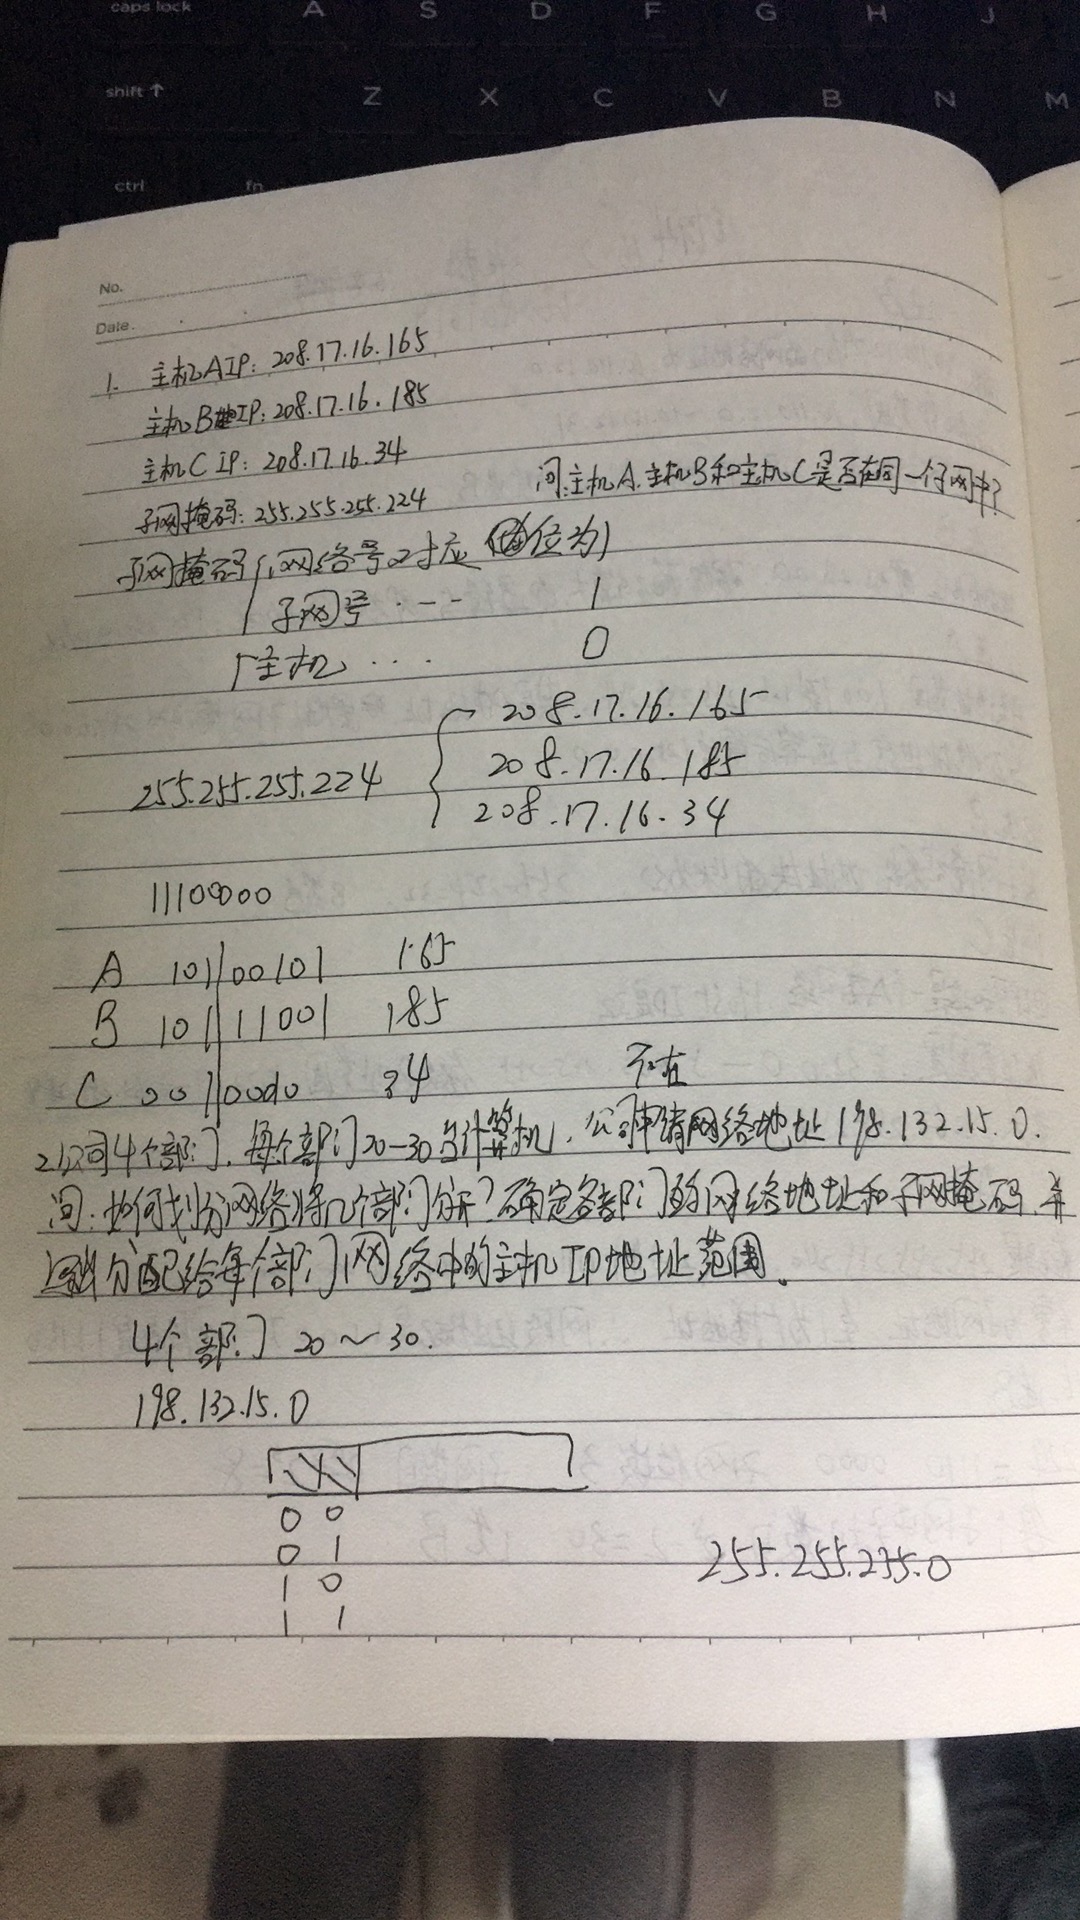 caps lock A S D F G H J
shift ↑ Z X C V B N M
ctrl fn
No.
Date.
1. 主机A IP: 208.17.16.165
主机B IP: 208.17.16.185
主机C IP: 208.17.16.34
子网掩码: 255.255.255.224 问:主机A.主机B和主机C是否在同一个子网中?
子网掩码 网络号对应 位为1
子网号 ... 1
主机 ... 0
208.17.16.165
255.255.255.224 208.17.16.185
208.17.16.34
11100000
A 10100101 165
B 10111001 185
C 00100010 34 不在
2.公司4个部门,每个部门20-30台计算机,公司申请网络地址198.132.15.0.
问:如何划分网络将几个部门分开?确定各部门的网络地址和子网掩码,并
分配给每个部门网络中的主机IP地址范围.
4个部门 20~30.
198.132.15.0
0 0
0 1
1 0
1 1
255.255.235.0